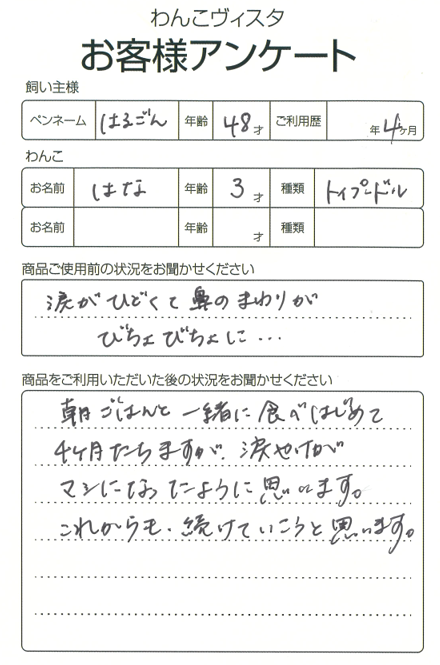 わんこヴィスタ
お客様アンケート
飼い主様
ペンネーム はるごん 年齢 48才 ご利用歴 年4ヶ月
わんこ
お名前 はな 年齢 3才 種類 トイプードル
お名前 年齢 才 種類
商品ご使用前の状況をお聞かせください
涙がひどくて鼻のまわりが
びちょびちょに…
商品をご利用いただいた後の状況をお聞かせください
朝ごはんと一緒に食べはじめて
4ヶ月たちますが、涙やけが
マシになったように思います。
これからも、続けていこうと思います。